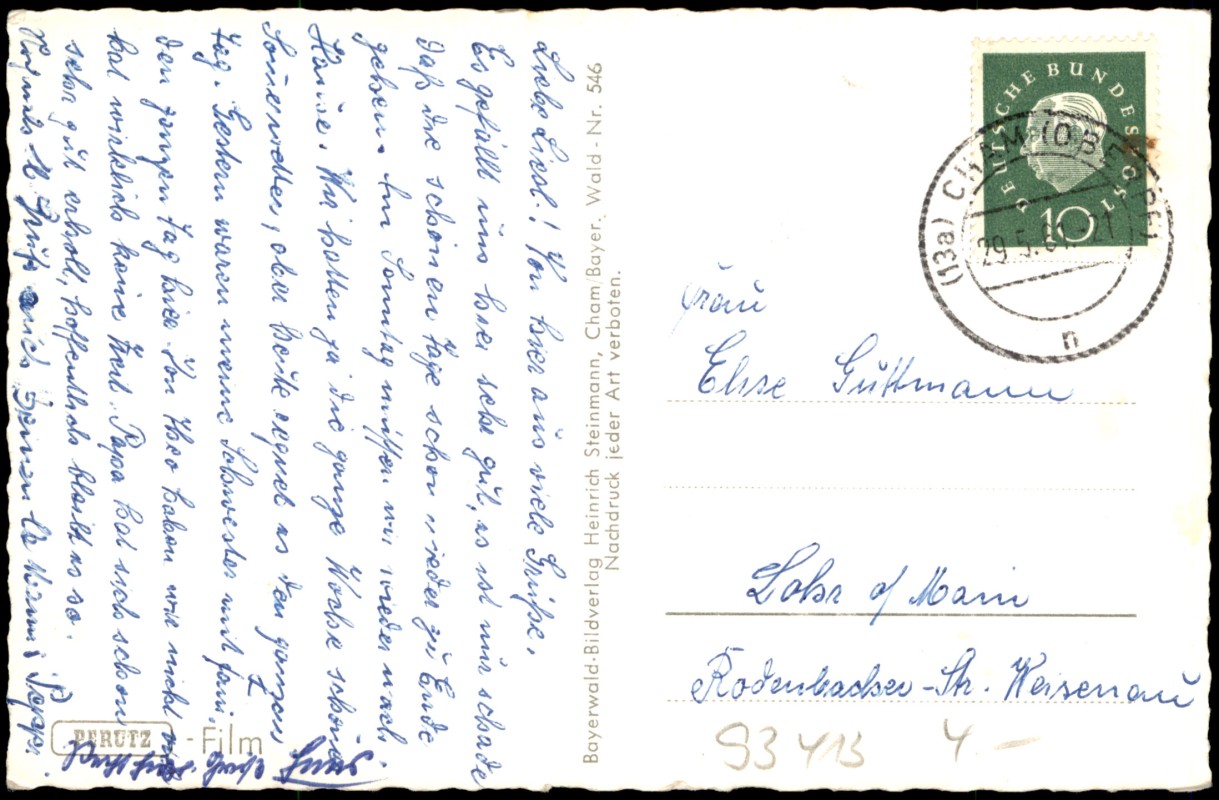 Liebe Liesl! Von hier aus viele Grüße.
Es gefällt uns hier sehr gut, es ist nur schade
daß die schönen Tage schon wieder zu Ende
gehen. Am Sonntag müssen wir wieder nach
Hause. Wir hatten ja die ganze Woche schönes
Sommerwetter, aber heute regnet es den ganzen
Tag. Gestern waren meine Schwester mit Fam.
den ganzen Tag hier. Von Theo haben wir nicht
hat wirklich keine Zeit. Papa hat sich schon
sehr gut erholt, hoffentlich bleibt es so.
Nochmals Grüße auch
PERUTZ-Film
Bayerwald-Bildverlag Heinrich Steinmann, Cham/Bayer. Wald - Nr. 546
Nachdruck jeder Art verboten.
DEUTSCHE BUNDESPOST
10
(13a) CHAM (OBERPF)
29.5.61.-21
n
Frau
Elise Guttmann
Lohr a/Main
Rodenbacher-Str. Weisenau
93413 4-